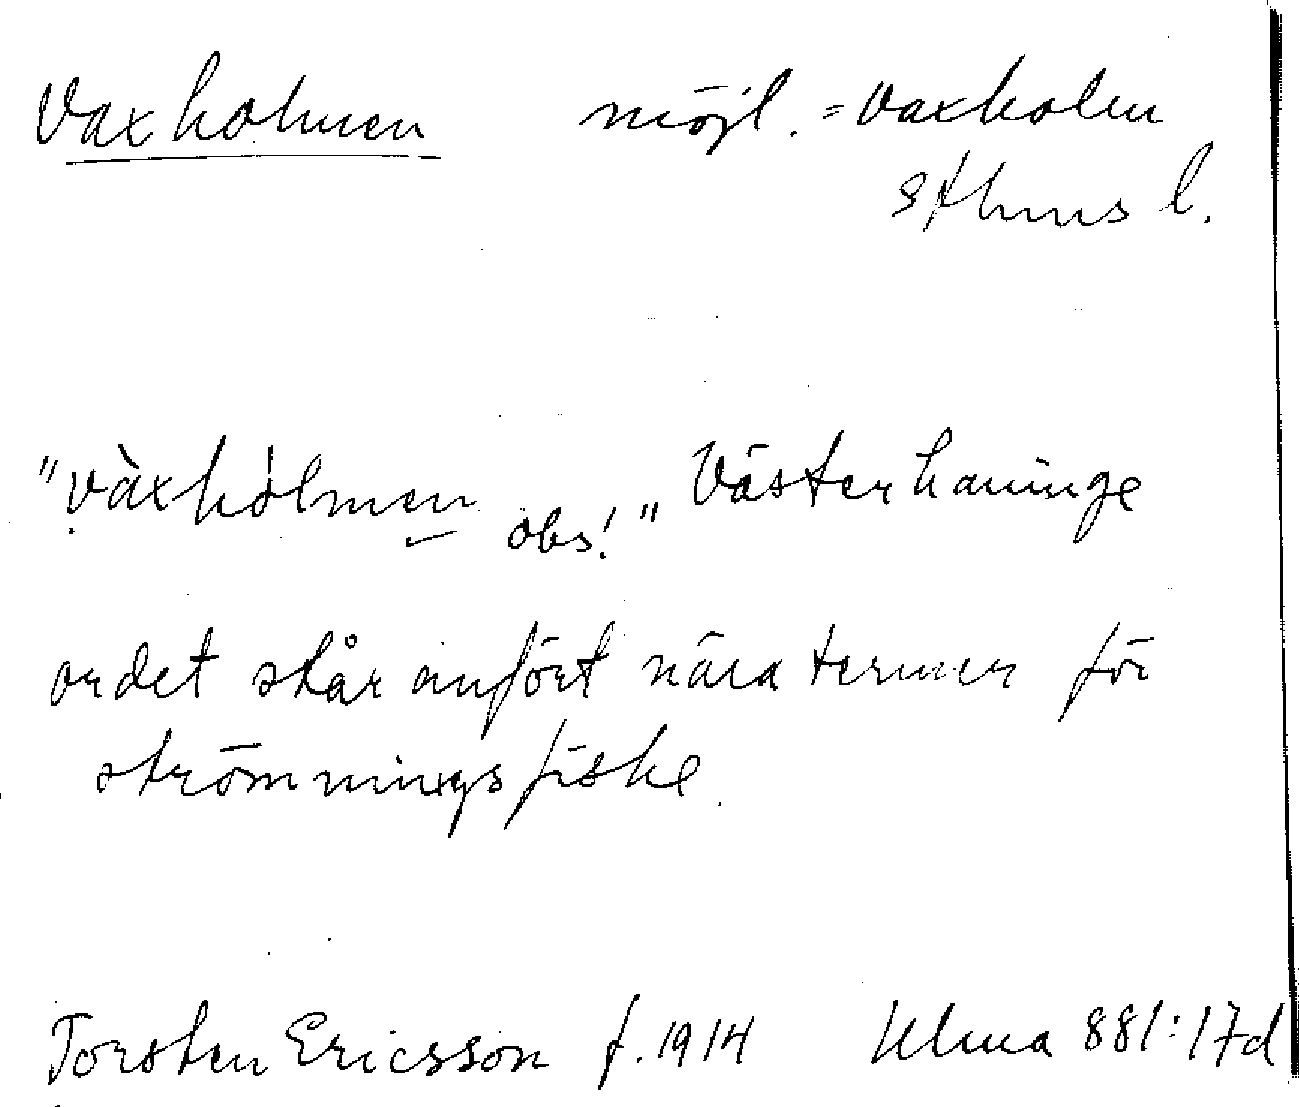 Vaxholmen möjl. = Vaxholm
Sthms l.
"vàxhólmen obs!" Västerhaninge
ordet står anfört nära termer för
strömmingsfiske.
Torsten Ericsson f. 1914 Ulma 881:17d